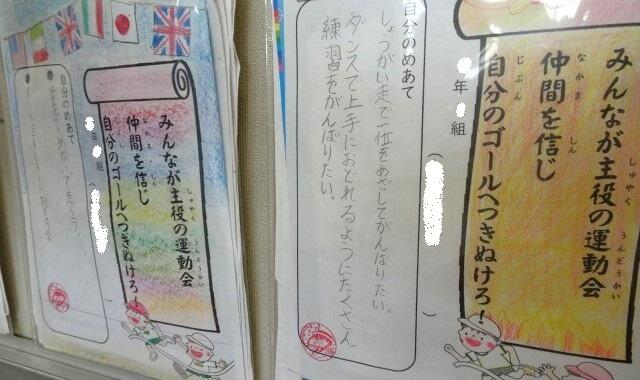 みんなが主役の運動会
仲間を信じ
自分のゴールへつきぬけろ！
年 組
自分のめあて
しょうがい走で一位をめざしてがんばりたい。
ダンスで上手におどれるようにたくさん
練習をがんばりたい。
みんなが主役の運動会
仲間を信じ
自分のゴールへつきぬけろ！
年 組
自分のめあて